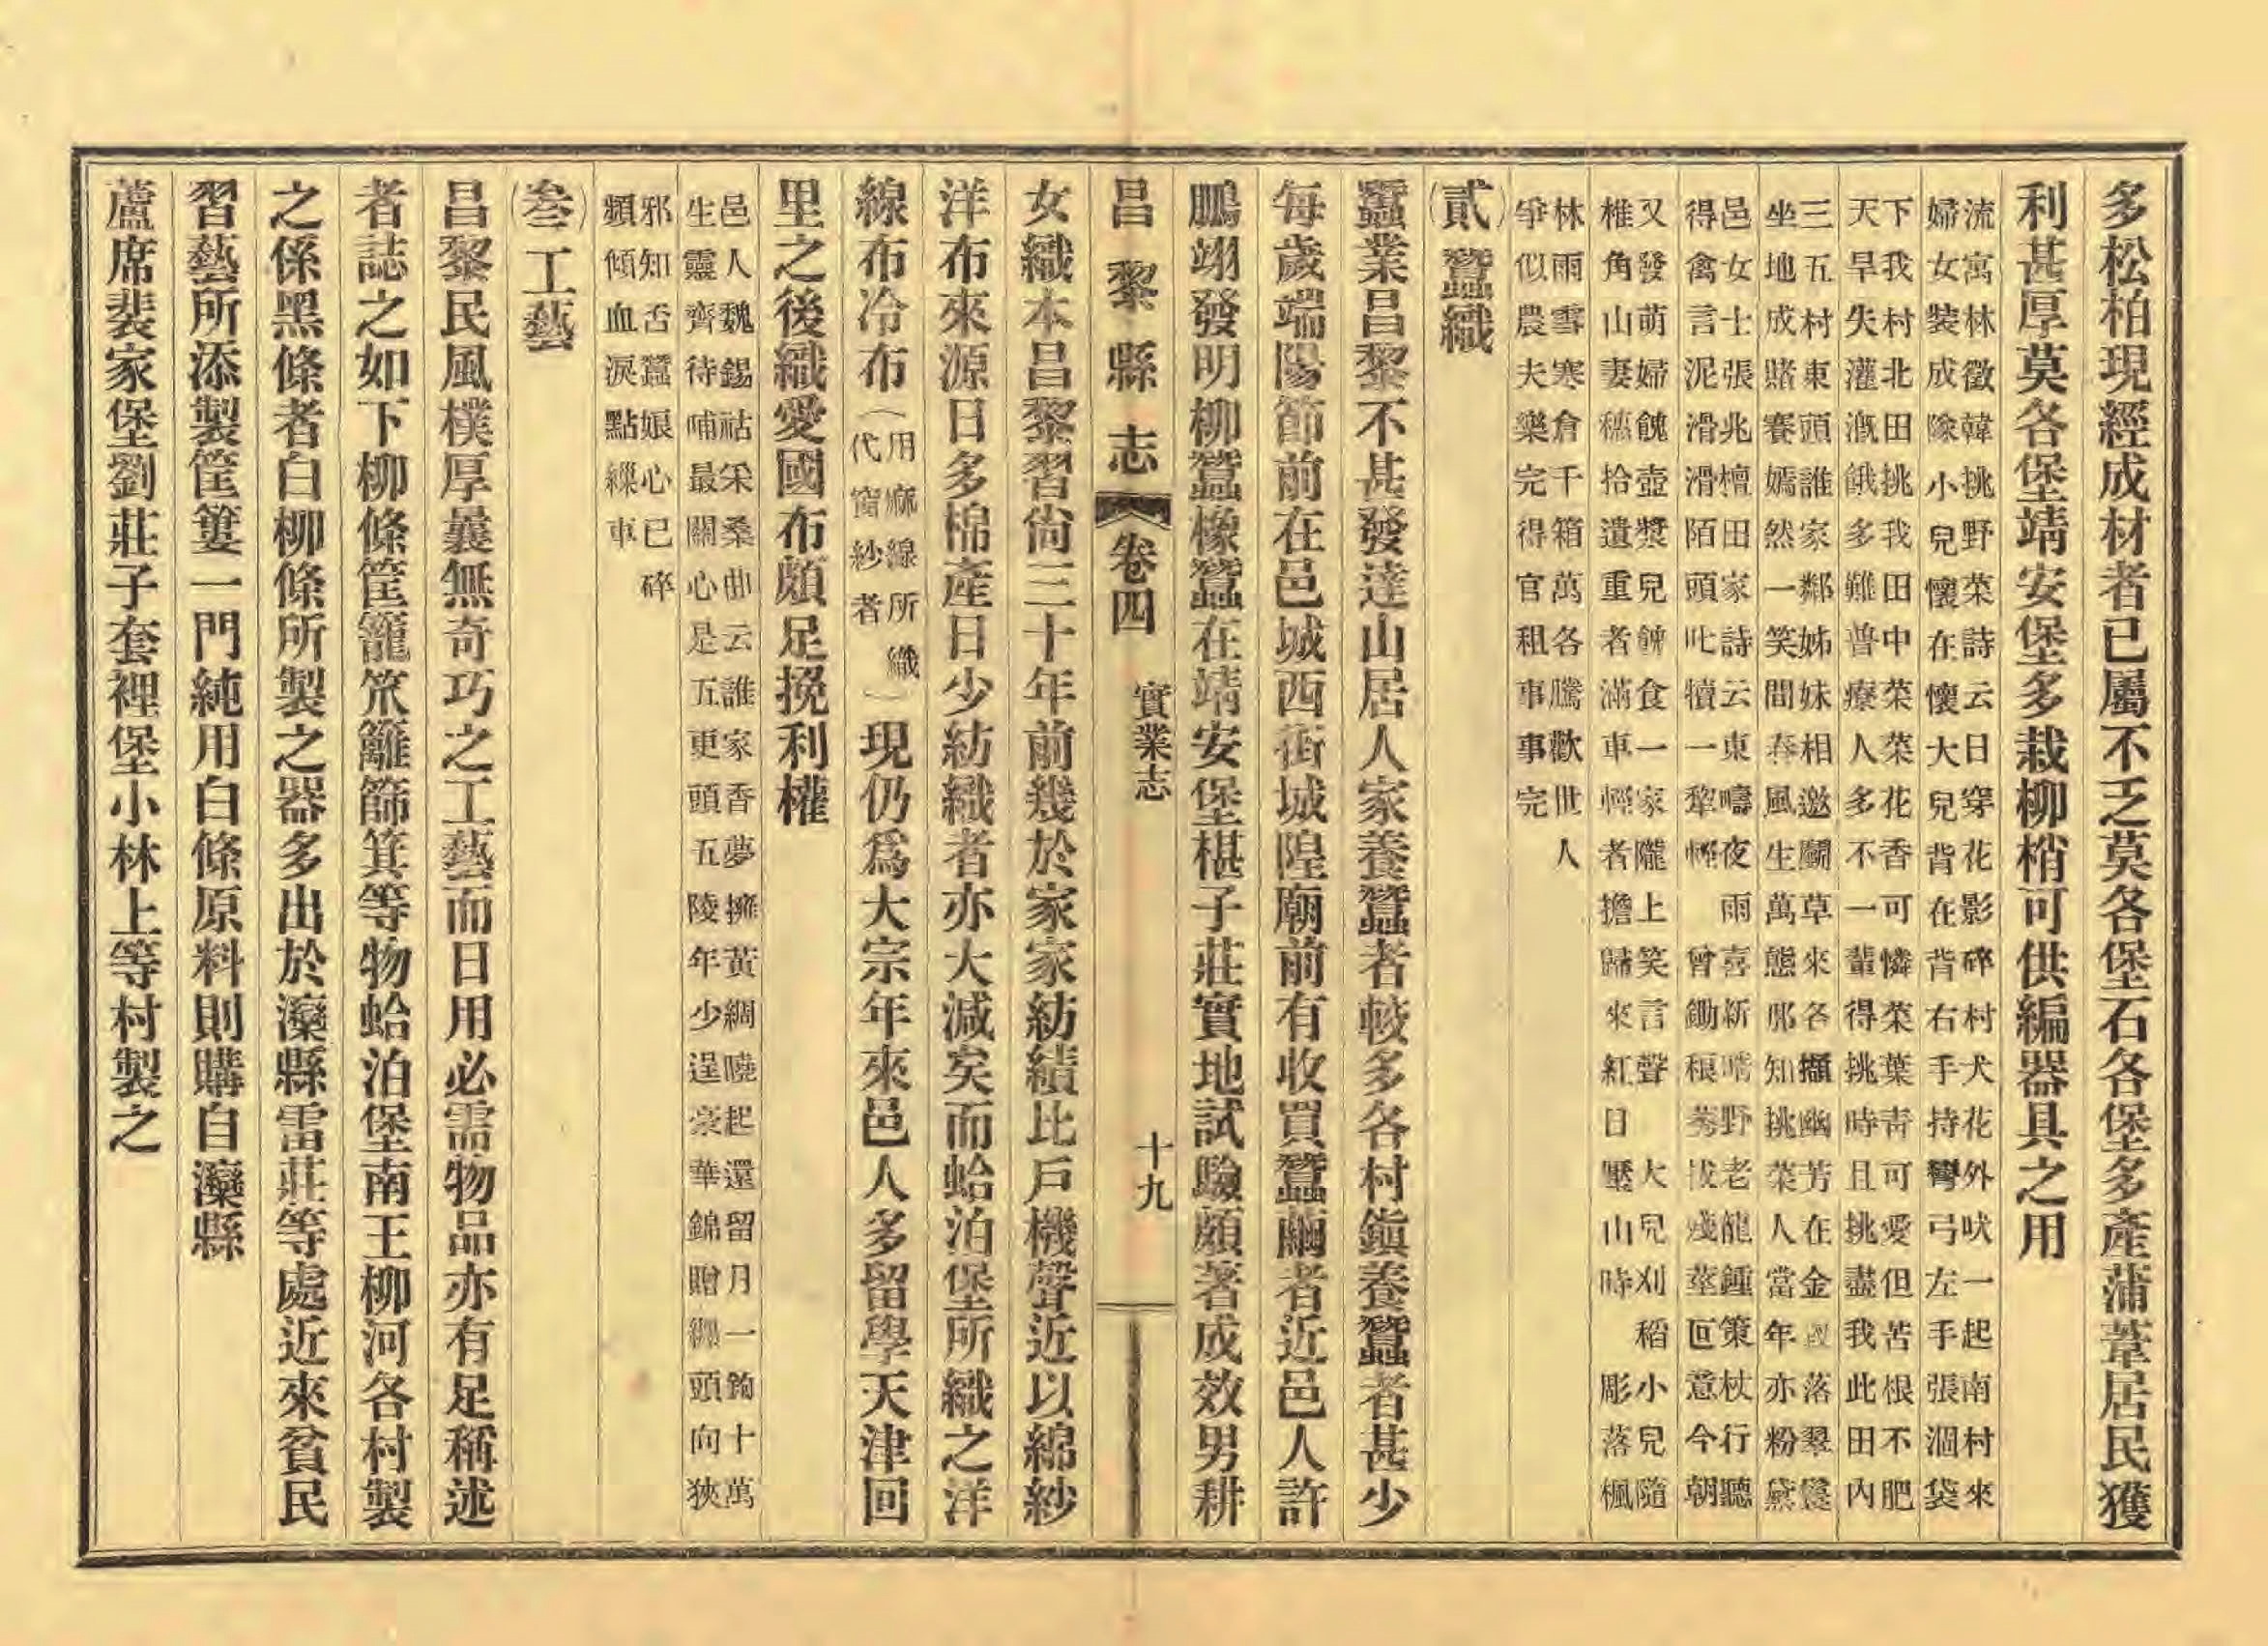 多松柏現經成材者已屬不乏莫各堡石各堡多產蒲葦居民獲
利甚厚莫各堡靖安堡多栽柳梢可供編器具之用
流寓林徵韓挑野菜詩云日穿花影碎村犬花外吠一起南村來
婦女裝成隊小兒懷在懷大兒背在背右手持彎弓左手張涸袋
下我村北田挑我田中菜菜花香可憐菜葉青可愛但苦根不肥
天旱失灌溉餓多難普療人多不一輩得挑時且挑盡我此田內
三五村東頭誰家鄰姊妹相邀鬭草來各擷幽芳在金落翠鬟
坐地成賭賽嫣然一笑間春風生萬態那知挑菜人當年亦粉黛
邑女士張兆檀田家詩云東疇夜雨喜新晴野老龍鍾策杖行聽
得禽言泥滑滑陌頭叱犢一犂輕 曾鋤稂莠拔殘莖叵意今朝
又發萌婦餽壺漿兒餉食一家隴上笑言聲 大兒刈稻小兒隨
椎角山妻穗拾遺重者滿車輕者擔歸來紅日壓山時 彫落楓
林雨雪寒倉千箱萬各騰歡世人
爭似農夫樂完得官租事事完
(貳)蠶織
蠶業昌黎不甚發達山居人家養蠶者較多各村鎮養蠶者甚少
每歲端陽節前在邑城西街城隍廟前有收買蠶繭者近邑人許
鵬翊發明柳蠶橡蠶在靖安堡椹子莊實地試驗頗著成效男耕
昌黎縣志 卷四 實業志 十九
女織本昌黎習尙三十年前幾於家家紡績比戶機聲近以綿紗
洋布來源日多棉產日少紡織者亦大減矣而蛤泊堡所織之洋
線布冷布(用麻線所織代窗紗者)現仍爲大宗年來邑人多留學天津回
里之後織愛國布頗足挽利權
邑人魏錫祜采桑曲云誰家香夢擁黃綢曉起還留月一鉤十萬
生靈齊待哺最關心是五更頭五陵年少逞豪華錦贈頭向狹
邪知否蠶娘心已碎
類傾血淚點繅車
(叁)工藝
昌黎民風樸厚曩無奇巧之工藝而日用必需物品亦有足稱述
者誌之如下柳條筐籠笊籬篩箕等物蛤泊堡南王柳河各村製
之係黑條者白柳條所製之器多出於灤縣雷莊等處近來貧民
習藝所添製筐簍一門純用白條原料則購自灤縣
蘆席裴家堡劉莊子套裡堡小林上等村製之